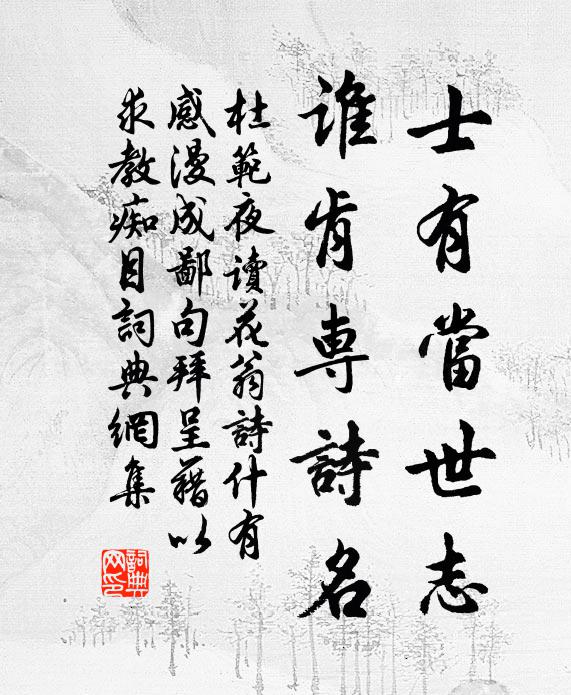 士有當世志
誰肯専詩名
杜範夜讀花翁詩什有
感漫成鄙句拜呈藉以
求教痴目詞典網集
詞典网印